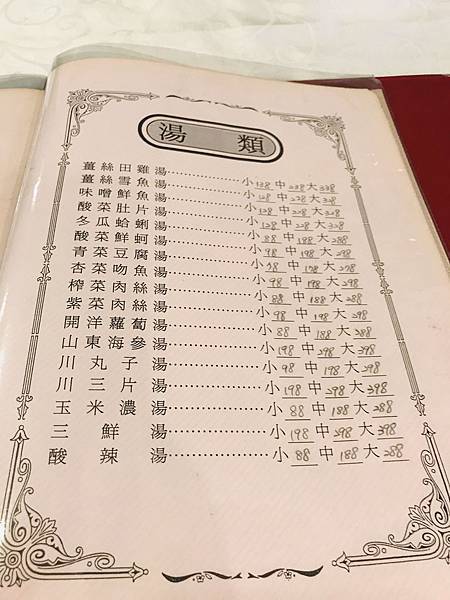 湯類
薑絲田雞湯……………小138中238大338
薑絲雪魚湯……………小128中228大328
味噌鮮魚湯……………小128中228大328
酸菜肚片湯……………小128中228大328
冬瓜蛤蜊湯……………小88中188大288
酸菜鮮蚵湯……………小98中198大298
青菜豆腐湯……………小98中198大298
杏菜吻魚湯……………小98中198大298
榨菜肉絲湯……………小88中188大288
紫菜肉絲湯……………小98中198大298
開洋蘿蔔湯……………小88中188大288
山東海參湯……………小198中298大398
川丸子湯……………小98中198大298
川三片湯……………小198中298大398
玉米濃湯……………小88中188大288
三鮮湯……………小198中298大398
酸辣湯……………小88中188大288